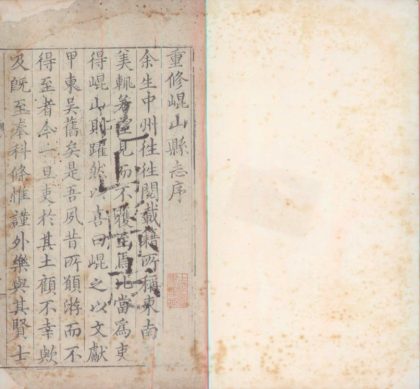 重修崐山縣志序
余生中州徃徃閱載籍所稱東南
美輒若見而不獲至焉當為吏
得崐山則躍然以喜曰崐之以文獻
甲東吳舊矣是吾夙昔所願游而不
得至者今一旦吏於其土顧不幸歟
及旣至奉科條惟謹外樂與其賢士